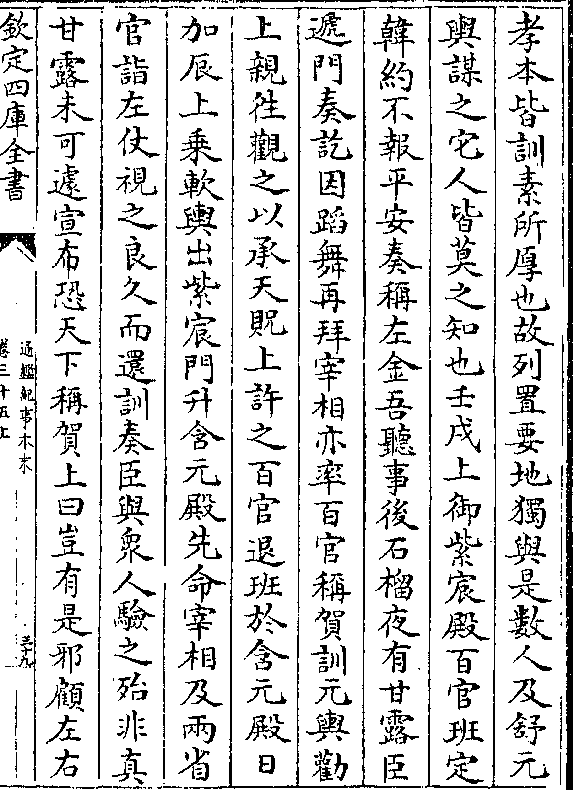 孝本皆訓素所厚也故列置要地獨與是數人及舒元
輿謀之它人皆莫之知也壬戌上御紫宸殿百官班定
韓約不報平安奏稱左金吾聽事後石榴夜有甘露臣
遞門奏訖因蹈舞再拜宰相亦率百官稱賀訓元輿勸
上親徃觀之以承天貺上許之百官退班於含元殿日
加辰上乗軟輿出紫宸門升含元殿先命宰相及兩省
官詣左仗視之良久而還訓奏臣與衆人驗之殆非真
甘露未可遽宣布恐天下稱賀上曰豈有是邪顧左右
欽定四庫全書
通鑑紀事本末
卷三十五上
三九